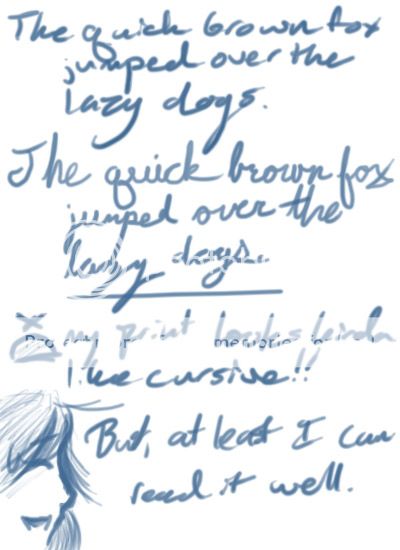 The quick brown fox
jumped over the
lazy dogs.
The quick brown fox
jumped over the
lazy dogs.
my print looks kinda
like cursive!!
But, at least I can
read it well.